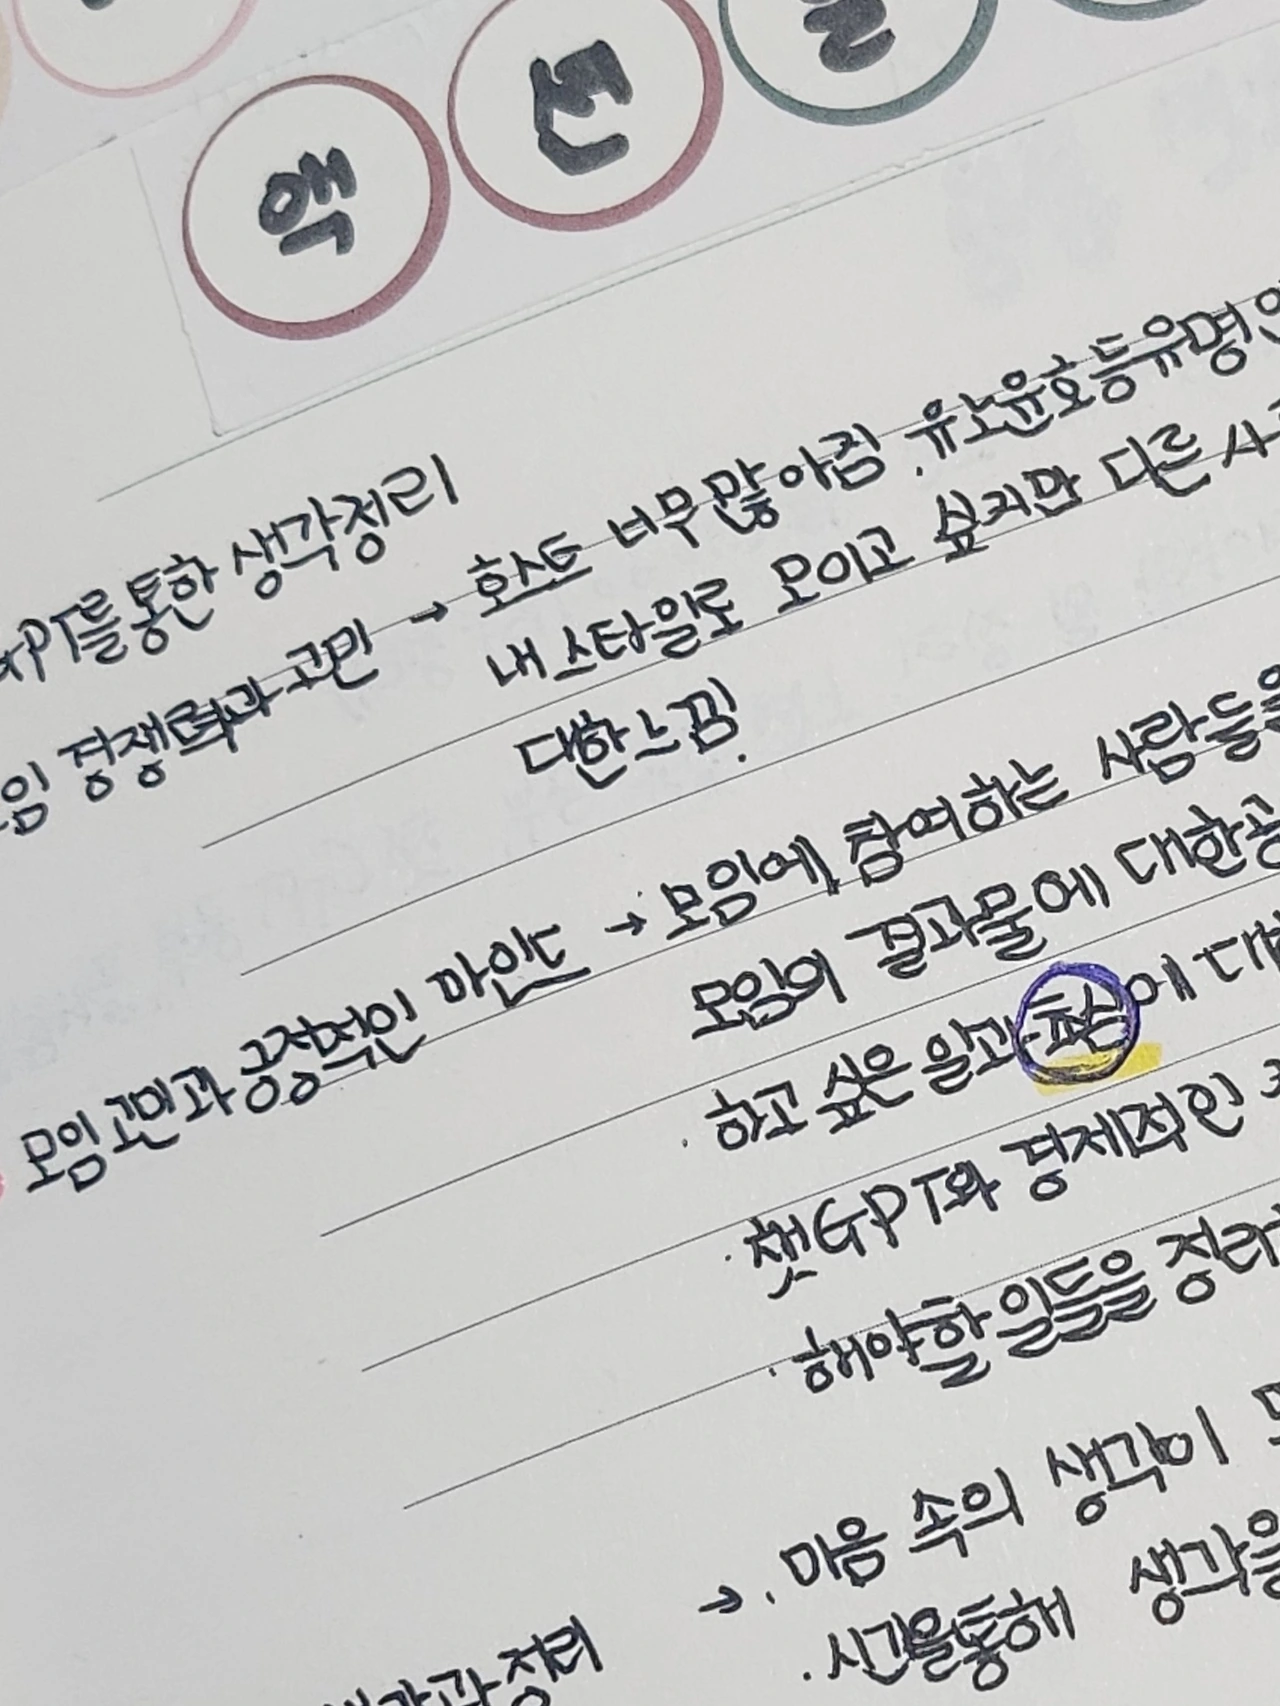 액션플
GPT를 통한 생각정리
임 경쟁력과 고민 → 호스트 너무 많아짐. 유노윤호 등 유명
내 스타일로 모이고 싶지만 다른
대한 느낌.
모임 고민과 긍정적인 마인드 → 모임에 참여하는 사람들을
모임의 결과물에 대한
· 하고 싶은 일과 초심에 대
· 챗GPT와 경제적인
· 해야할 일들을 정리
→ · 마음 속의 생각이
· 시간을 통해 생각을
정리